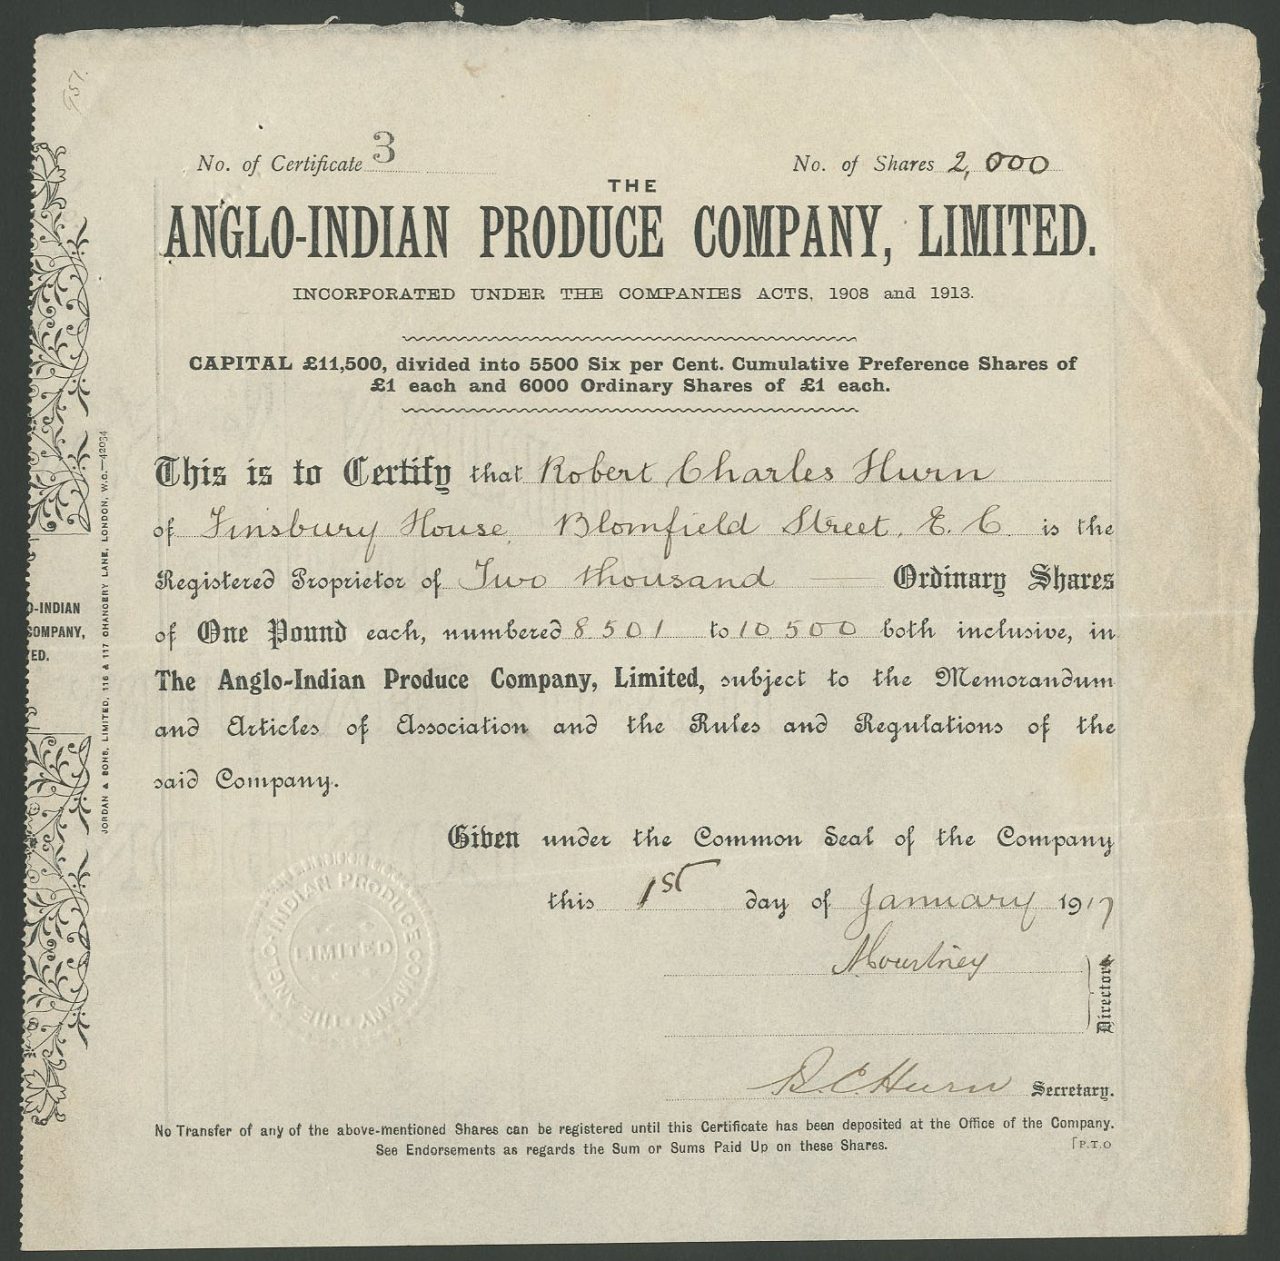 951.
No. of Certificate 3
No. of Shares 2,000
THE
ANGLO-INDIAN PRODUCE COMPANY, LIMITED.
INCORPORATED UNDER THE COMPANIES ACTS, 1908 and 1913.
CAPITAL £11,500, divided into 5500 Six per Cent. Cumulative Preference Shares of
£1 each and 6000 Ordinary Shares of £1 each.
This is to Certify that Robert Charles Hurn
of Finsbury House, Blomfield Street, E.C. is the
Registered Proprietor of Two thousand Ordinary Shares
of One Pound each, numbered 8501 to 10500 both inclusive, in
The Anglo-Indian Produce Company, Limited, subject to the Memorandum
and Articles of Association and the Rules and Regulations of the
said Company.
Given under the Common Seal of the Company
this 1st day of January 1917
Directors
R.C. Hurn Secretary.
No Transfer of any of the above-mentioned Shares can be registered until this Certificate has been deposited at the Office of the Company.
See Endorsements as regards the Sum or Sums Paid Up on these Shares.
[P.T.O
THE ANGLO-INDIAN PRODUCE COMPANY
LIMITED
O-INDIAN
COMPANY,
ED.
JORDAN & SONS, LIMITED, 116 & 117 CHANCERY LANE, LONDON, W.C.—42034